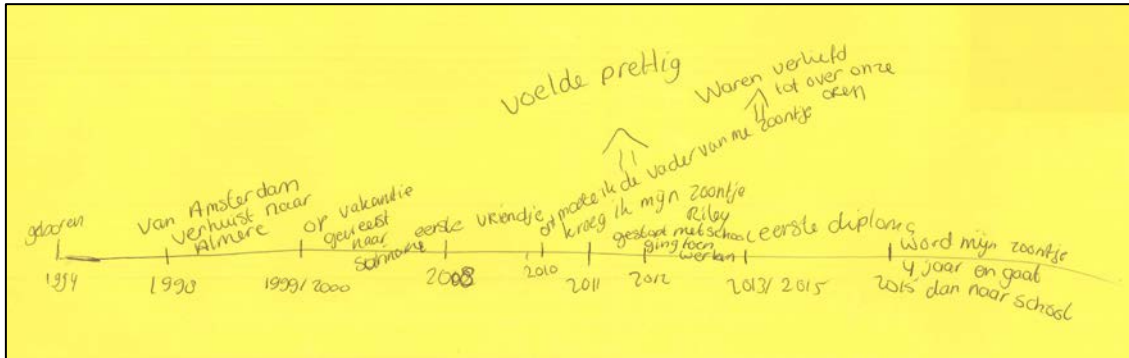 voelde prettig
Waren verliefd
tot over onze
oren
geboren
van Amsterdam
verhuist naar
Almere
op vakantie
geweest
naar
Suriname
eerste vriendje
ontmoete ik de vader van me zoontje
kroeg ik mijn zoontje
Riley
gestopt met school
ging toen
werken
eerste diploma
word mijn zoontje
4 jaar en gaat
dan naar school
1994
1998
1999/2000
2008
2010
2011
2012
2013/2015
2015